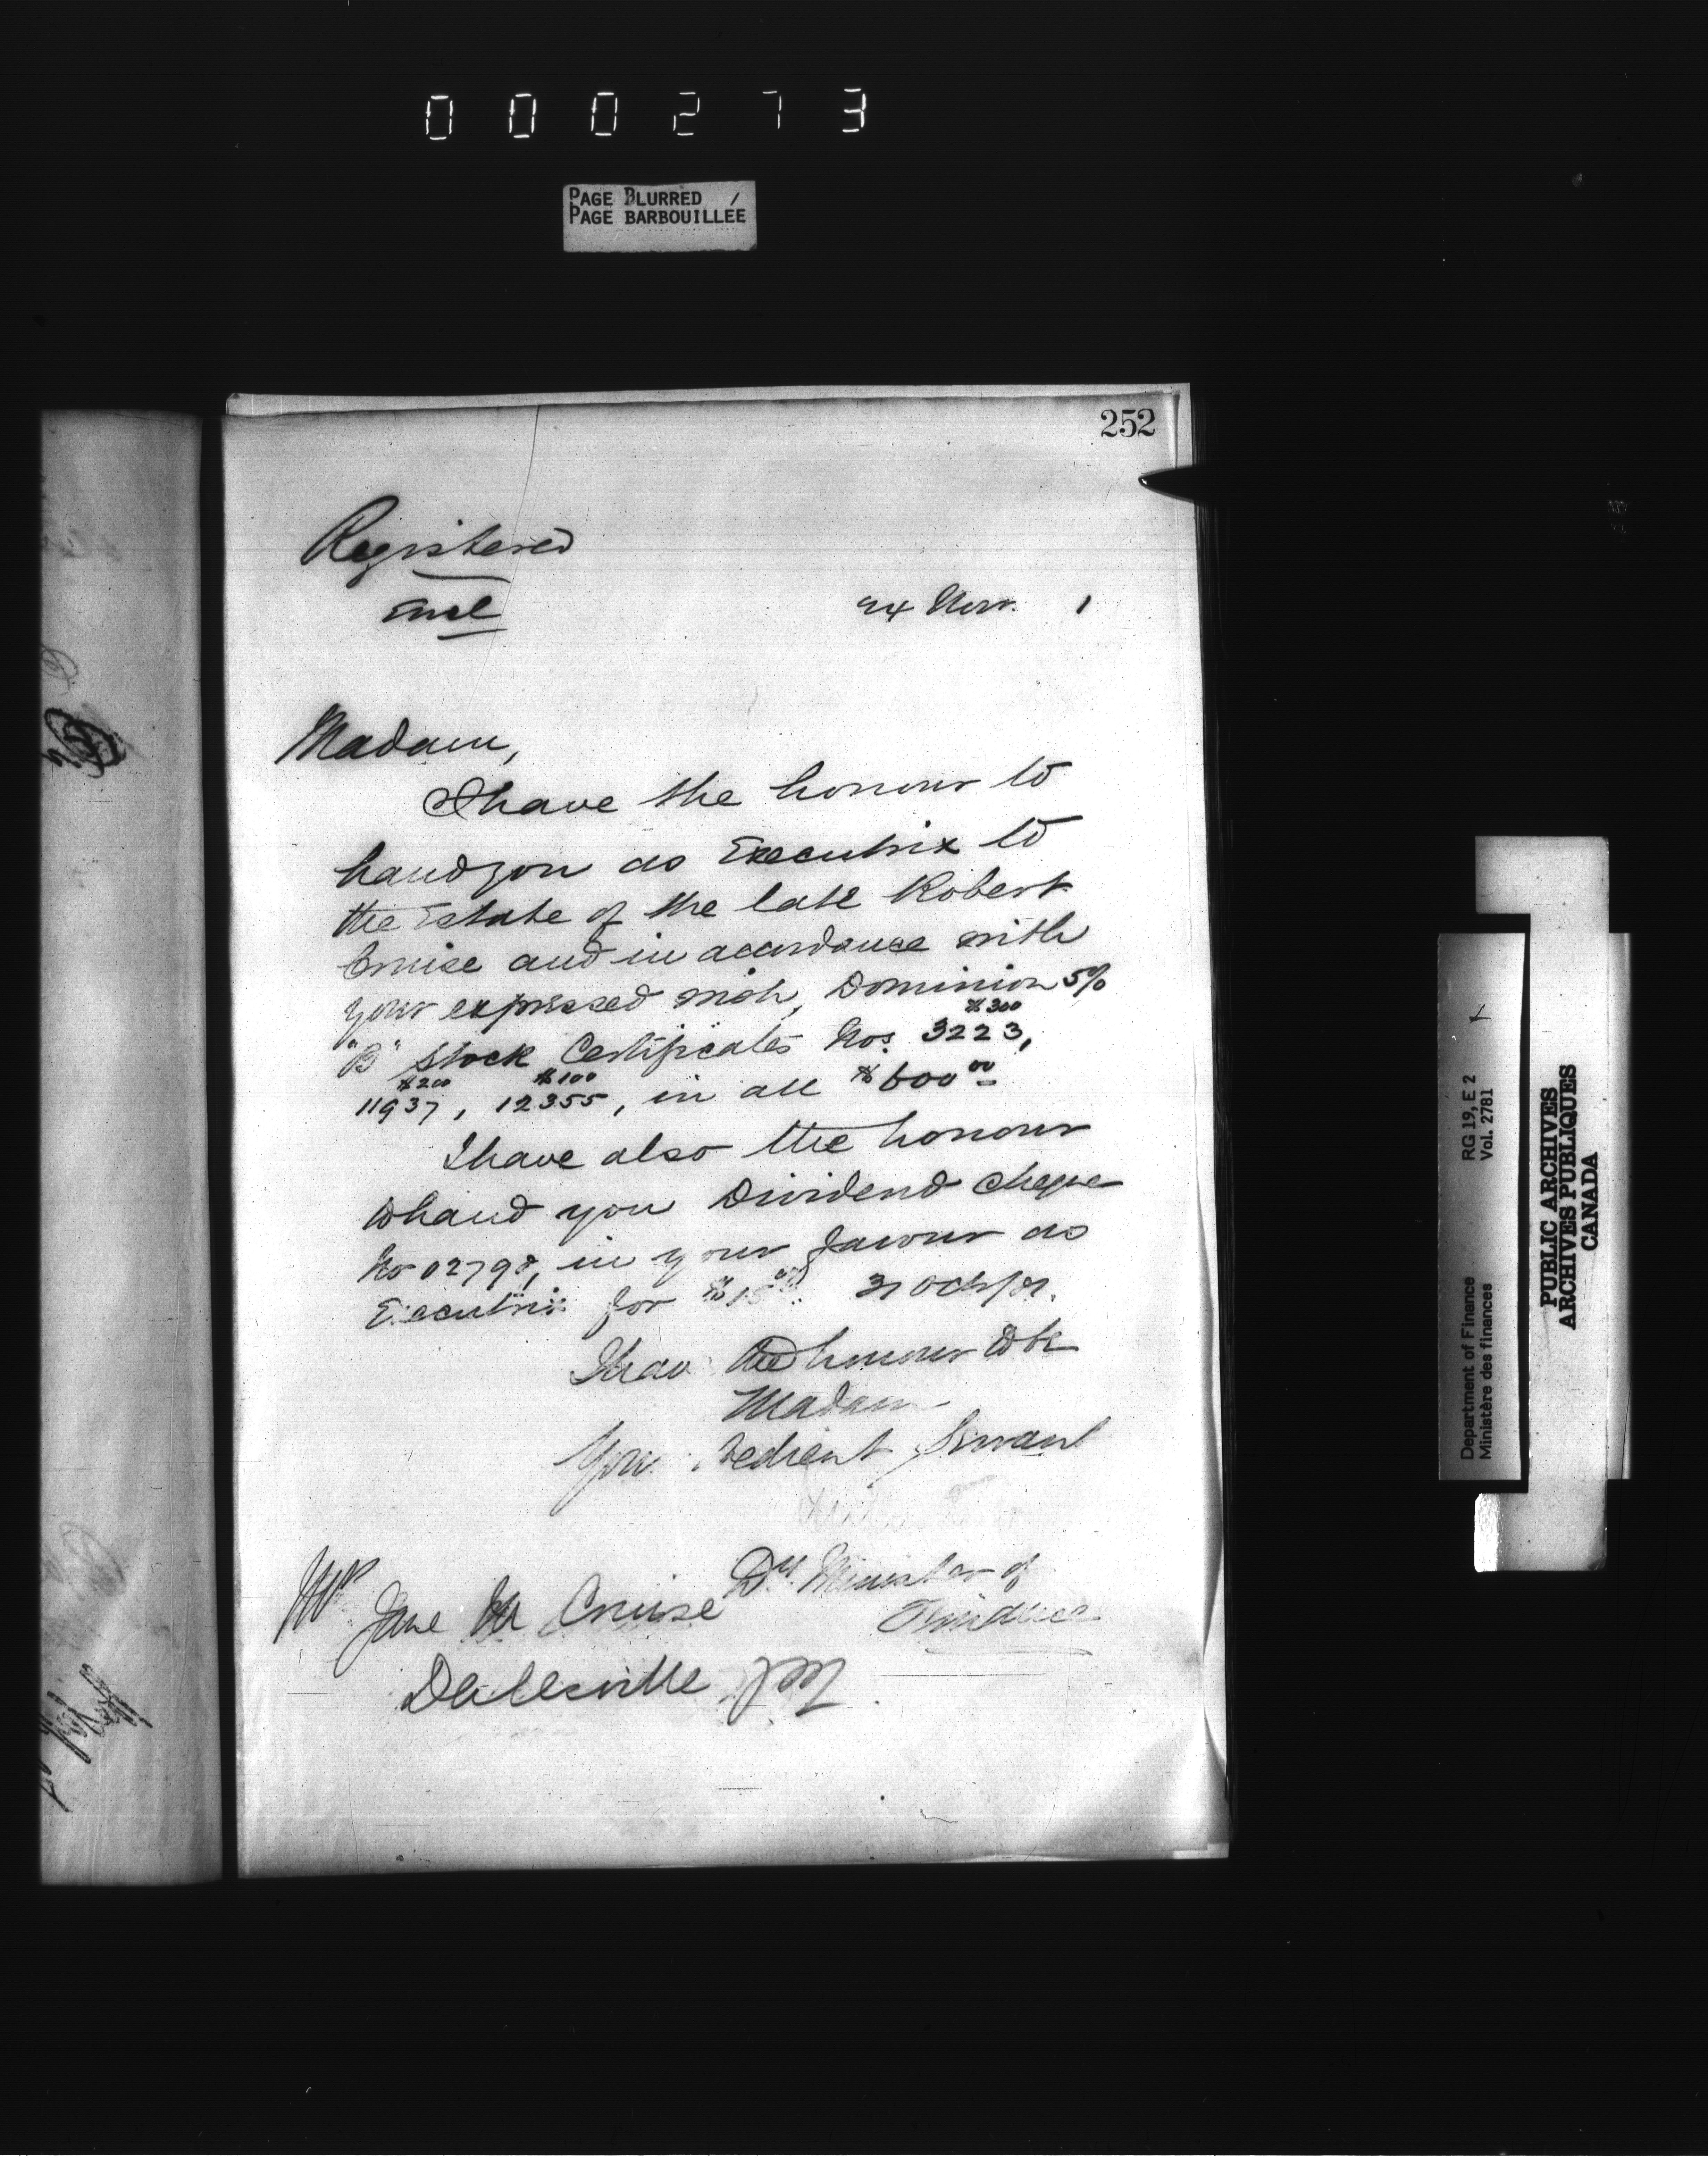 000273
PAGE BLURRED
PAGE BARBOUILLÉE
252
Registered
Encl
24 Nov. 1
Madam,
I have the honour to
hand you as Executrix to
the Estate of the late Robert
Cruise and in accordance with
your expressed wish, Dominion 5%
"B" Stock Certificates Nos. $300 3223,
$200 11937, $100 12355, in all $600 00
I have also the honour
to hand you Dividend cheque
No 02798, in your favour as
Executrix for $15 31 Oct/81.
I have the honour to be
Madam
Your obedient Servant
Dy. Minister of
Finance
Mrs Jane M Cruise
Dalesville PQ
Department of Finance RG 19, E 2
Ministère des finances Vol. 2781
PUBLIC ARCHIVES
ARCHIVES PUBLIQUES
CANADA